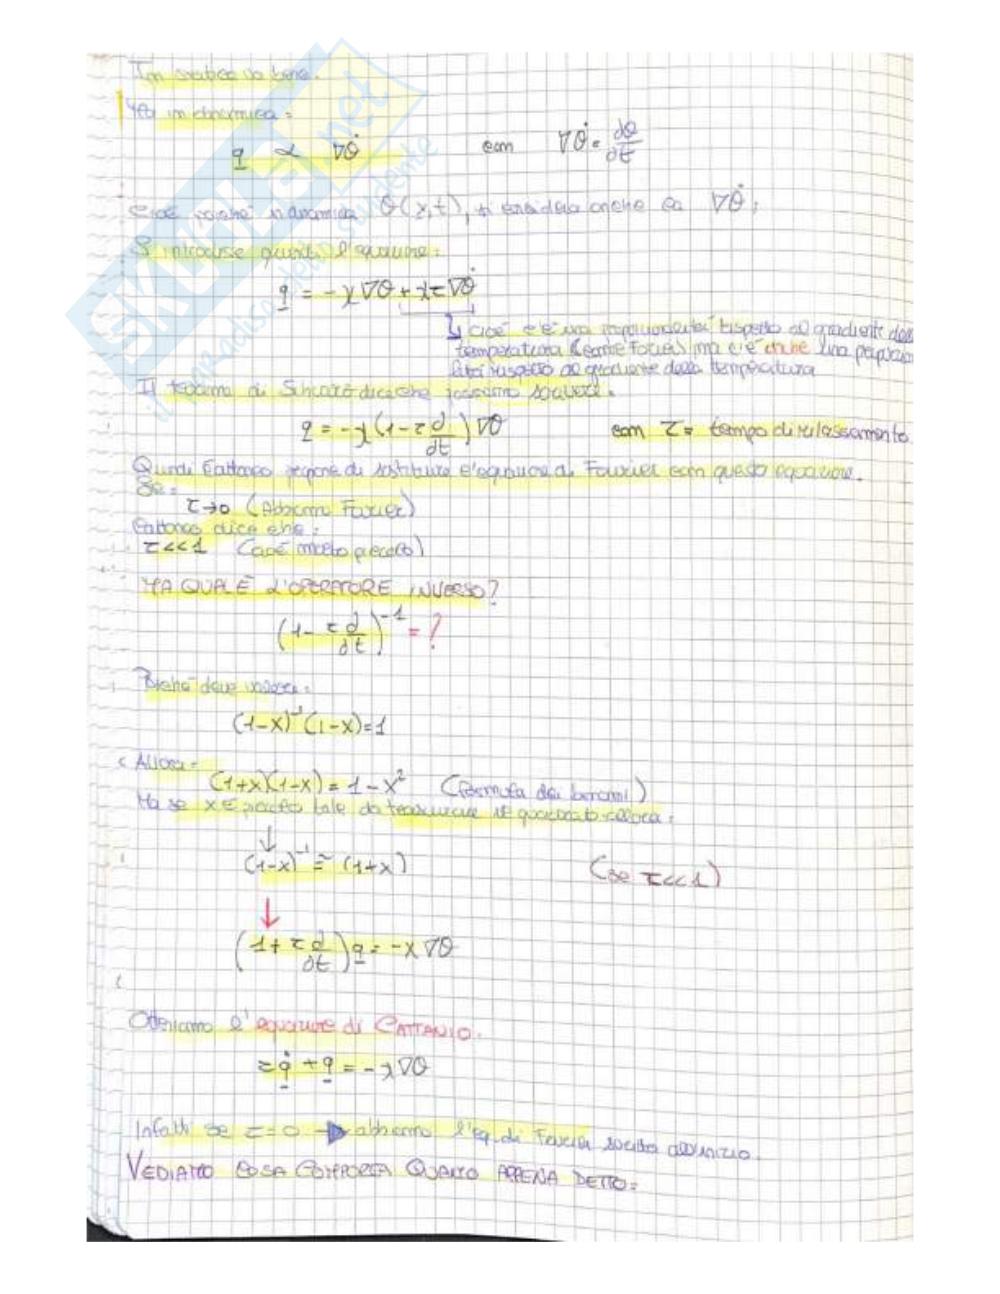 In statica va bene.
Ma in dinamica:
q ∝ ∇θ̇ con ∇θ̇ = dθ/dt
Cioè poiché in dinamica θ(x,t), si considera anche ∇θ̇;
Si introduce quindi l'equazione:
q = -χ∇θ + χτ∇θ̇
↳ cioè c'è una rispetto al gradiente della
temperatura (come Fourier) ma c'è anche una
rispetto al gradiente della temperatura
Il teorema di dice che possiamo scrivere:
q = -χ(1-τ d/dt)∇θ con τ = tempo di rilassamento
Quindi Cattaneo propone di sostituire l'equazione di Fourier con questa equazione.
Se:
τ→0 (Abbiamo Fourier)
Cattaneo dice che:
τ<<1 (cioè molto piccolo)
MA QUAL È L'OPERATORE INVERSO?
(1-τ d/dt)⁻¹ = ?
Poiché deve valere:
(1-x)⁻¹(1-x)=1
Allora:
(1+x)(1-x) = 1-x² (formula dei binomi)
Ma se x è piccolo tale da trascurare il quadrato allora:
↓
(1-x)⁻¹ ≅ (1+x) (se τ<<1)
↓
(1+τ d/dt)q = -χ∇θ
Otteniamo l'equazione di CATTANEO.
τq̇ + q = -χ∇θ
Infatti se τ=0 → abbiamo l'eq. di Fourier all'inizio.
VEDIAMO COSA COMPORTA QUANTO APPENA DETTO:
SKUOLA.net
il paradiso dello studente